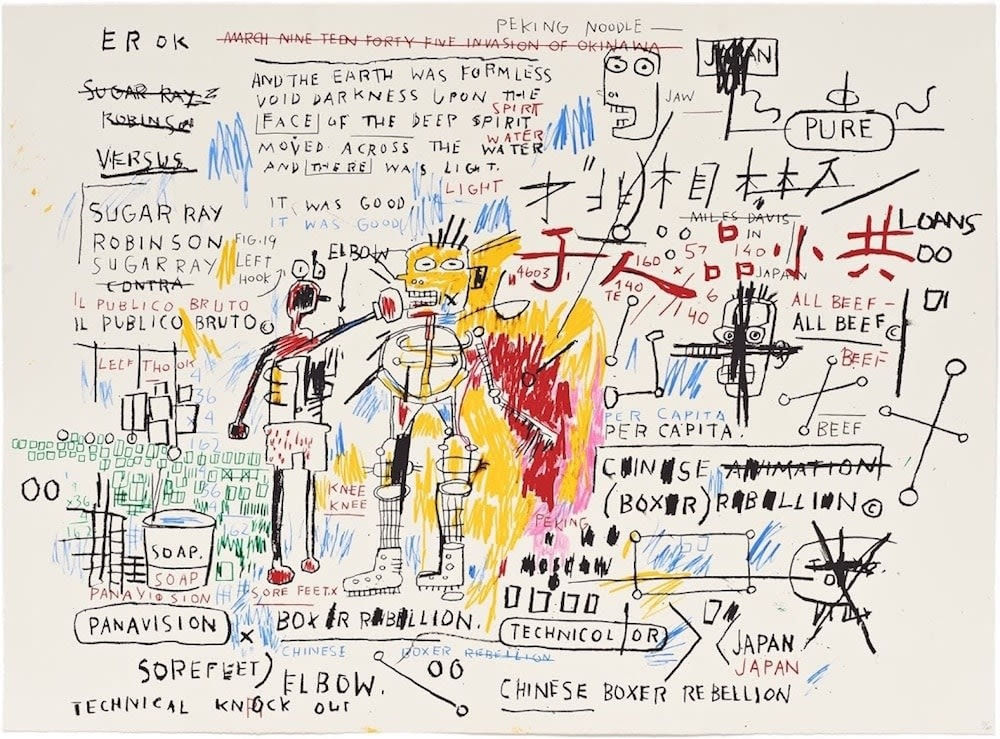 PEKING NOODLE —
ER OK
MARCH NINE TEEN FORTY FIVE INVASION OF OKINAWA
JAPAN
AND THE EARTH WAS FORMLESS
VOID DARKNESS UPON THE
SPIRIT
FACE OF THE DEEP SPIRIT
WATER
MOVED ACROSS THE WATER
AND THERE WAS LIGHT.
LIGHT
IT WAS GOOD
IT WAS GOOD
SUGAR RAY
ROBINSON
VERSUS
JAW
PURE
SUGAR RAY
ROBINSON
SUGAR RAY
CONTRA
IL PUBLICO BRUTO
IL PUBLICO BRUTO©
FIG.19
LEFT
HOOK
ELBOW
MILES DAVIS
IN
JAPAN
LOANS
于人品小共
"4603"
57
140
160 x
140
TE
6
40
ALL BEEF –
ALL BEEF
BEEF
BEEF
LELF THOOK
4
36
4
162
x36
162
PER CAPITA
PER CAPITA.
CHINESE ANIMATION
(BOXER) REBELLION©
KNEE
KNEE
PEKING
MOSCOW
SOAP.
SOAP
PANAVISION
SORE FEET.X
PANAVISION
X
BOXER REBELLION.
TECHNICOLOR
CHINESE BOXER REBELLION
JAPAN
JAPAN
SOREFEET)
ELBOW.
TECHNICAL KNOCK OUT
CHINESE BOXER REBELLION